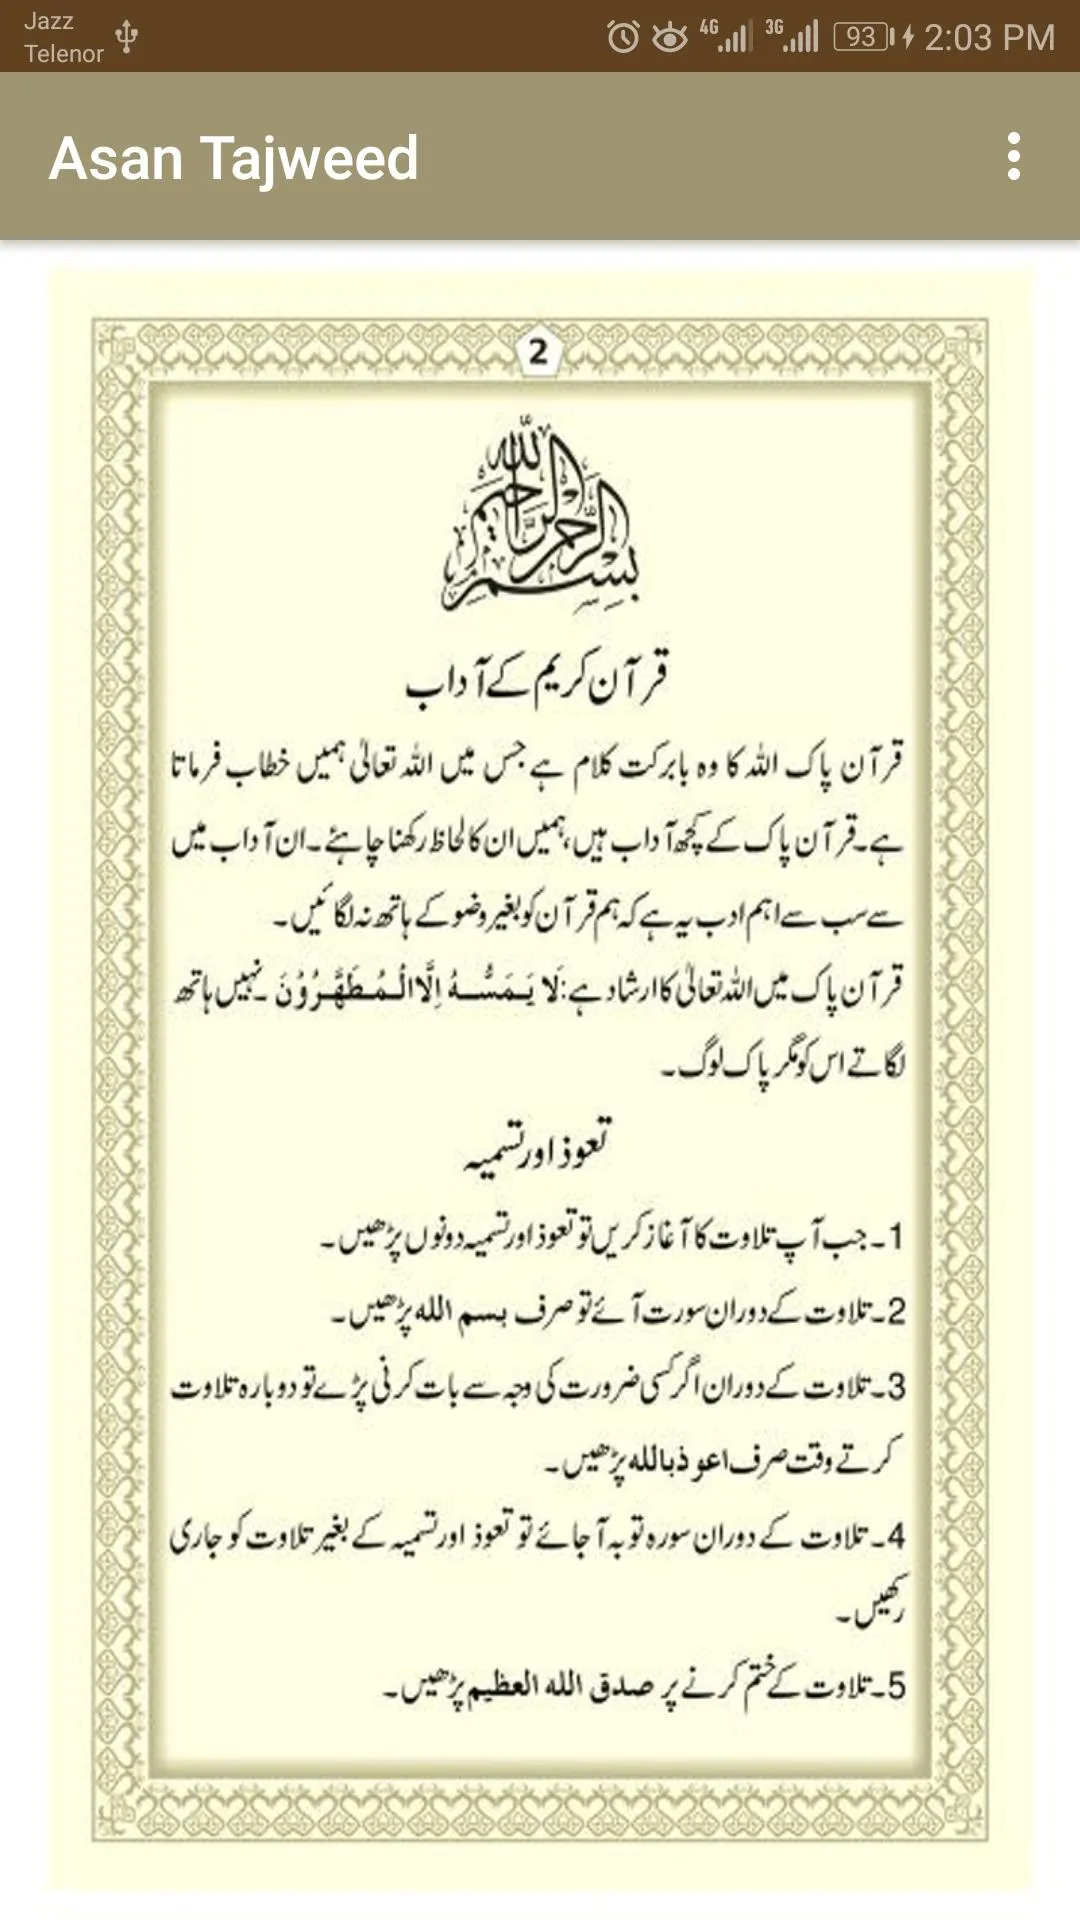 Jazz
Telenor
4G
3G
93
2:03 PM
Asan Tajweed
2
بسم الله الرحمن الرحيم
قرآن کریم کے آداب
قرآن پاک اللہ کا وہ بابرکت کلام ہے جس میں اللہ تعالیٰ ہمیں خطاب فرماتا
ہے۔ قرآن پاک کے کچھ آداب ہیں، ہمیں ان کا لحاظ رکھنا چاہئے۔ ان آداب میں
سے سب سے اہم ادب یہ ہے کہ ہم قرآن کو بغیر وضو کے ہاتھ نہ لگائیں۔
قرآن پاک میں اللہ تعالیٰ کا ارشاد ہے: لَا يَمَسُّهُ اِلَّا الْمُطَهَّرُوْنَ ۔ نہیں ہاتھ
لگاتے اس کو مگر پاک لوگ۔
تعوذ اور تسمیہ
1۔ جب آپ تلاوت کا آغاز کریں تو تعوذ اور تسمیہ دونوں پڑھیں۔
2۔ تلاوت کے دوران سورت آئے تو صرف بسم الله پڑھیں۔
3۔ تلاوت کے دوران اگر کسی ضرورت کی وجہ سے بات کرنی پڑے تو دوبارہ تلاوت
کرتے وقت صرف اعوذ بالله پڑھیں۔
4۔ تلاوت کے دوران سورہ توبہ آجائے تو تعوذ اور تسمیہ کے بغیر تلاوت کو جاری
رکھیں۔
5۔ تلاوت کے ختم کرنے پر صدق الله العظيم پڑھیں۔